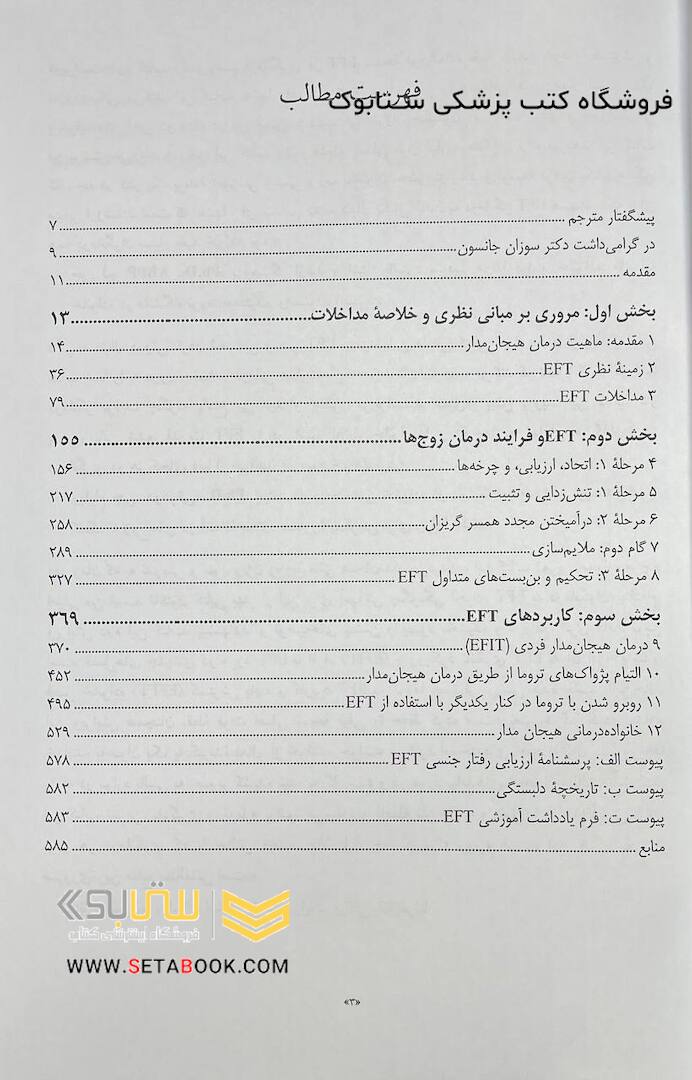 فهرست مطالب
فروشگاه کتب پزشکی ستابوک
پیشگفتار مترجم ........ ۷
در گرامی‌داشت دکتر سوزان جانسون ........ ۹
مقدمه ........ ۱۱
بخش اول: مروری بر مبانی نظری و خلاصهٔ مداخلات ........ ۱۳
۱ مقدمه: ماهیت درمان هیجان‌مدار ........ ۱۴
۲ زمینهٔ نظری EFT ........ ۳۶
۳ مداخلات EFT ........ ۷۹
بخش دوم: EFTو فرایند درمان زوج‌ها ........ ۱۵۵
۴ مرحلهٔ ۱: اتحاد، ارزیابی، و چرخه‌ها ........ ۱۵۶
۵ مرحلهٔ ۱: تنش‌زدایی و تثبیت ........ ۲۱۷
۶ مرحلهٔ ۲: درآمیختن مجدد همسر گریزان ........ ۲۵۸
۷ گام دوم: ملایم‌سازی ........ ۲۸۹
۸ مرحلهٔ ۳: تحکیم و بن‌بست‌های متداول EFT ........ ۳۲۷
بخش سوم: کاربردهای EFT ........ ۳۶۹
۹ درمان هیجان‌مدار فردی (EFIT) ........ ۳۷۰
۱۰ التیام پژواک‌های تروما از طریق درمان هیجان‌مدار ........ ۴۵۲
۱۱ روبرو شدن با تروما در کنار یکدیگر با استفاده از EFT ........ ۴۹۵
۱۲ خانواده‌درمانی هیجان مدار ........ ۵۲۹
پیوست الف: پرسشنامهٔ ارزیابی رفتار جنسی EFT ........ ۵۷۸
پیوست ب: تاریخچهٔ دلبستگی ........ ۵۸۲
پیوست ت: فرم یادداشت آموزشی EFT ........ ۵۸۳
منابع ........ ۵۸۵
ستابوک
فروشگاه اینترنتی کتاب
WWW.SETABOOK.COM
«۳»